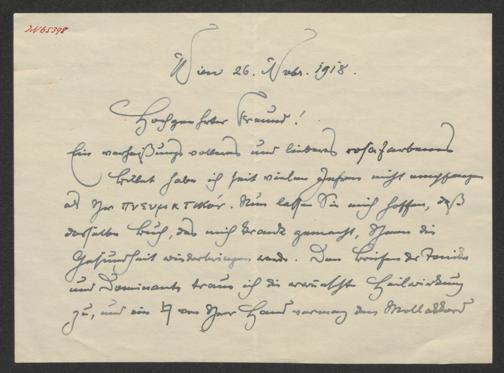 Wien 26. Nvbr. 1918.
Hochgeehrter Freund!
Ein verheißungsvolleres und lieberes rosafarbenes
Billet habe ich seit vielen Jahren nicht empfangen
als Ihr πνευματικόν. Nun lassen Sie mich hoffen, daß
dasselbe Buch, das mich krank gemacht, Ihnen die
Gesundheit wiederbringen werde. Den der Tonika
und Dominante traue ich die erwünschte Heilwirkung
zu, und ein ♮ von Ihrer Hand vermag den Mollakkord